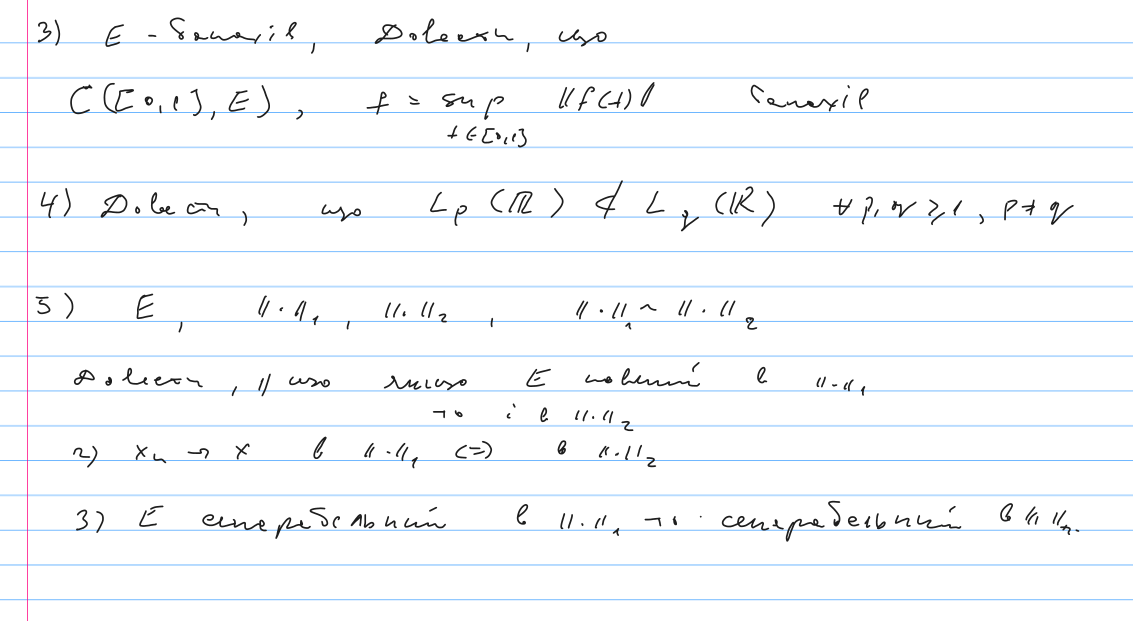 3) E - банахів, Довести, що
C([0,1], E), f = sup ||f(t)|| банахів
t∈[0,1]
4) Довести, що L_p(ℝ) ⊄ L_q(ℝ) ∀ p, q ≥ 1, p ≠ q
5) E, ||·||₁, ||·||₂, ||·||₁ ~ ||·||₂
Довести, 1) що якщо E повний в ||·||₁
то і в ||·||₂
2) xₙ → x в ||·||₁ <=> в ||·||₂
3) E сепарабельний в ||·||₁ то сепарабельний в || ||₂.